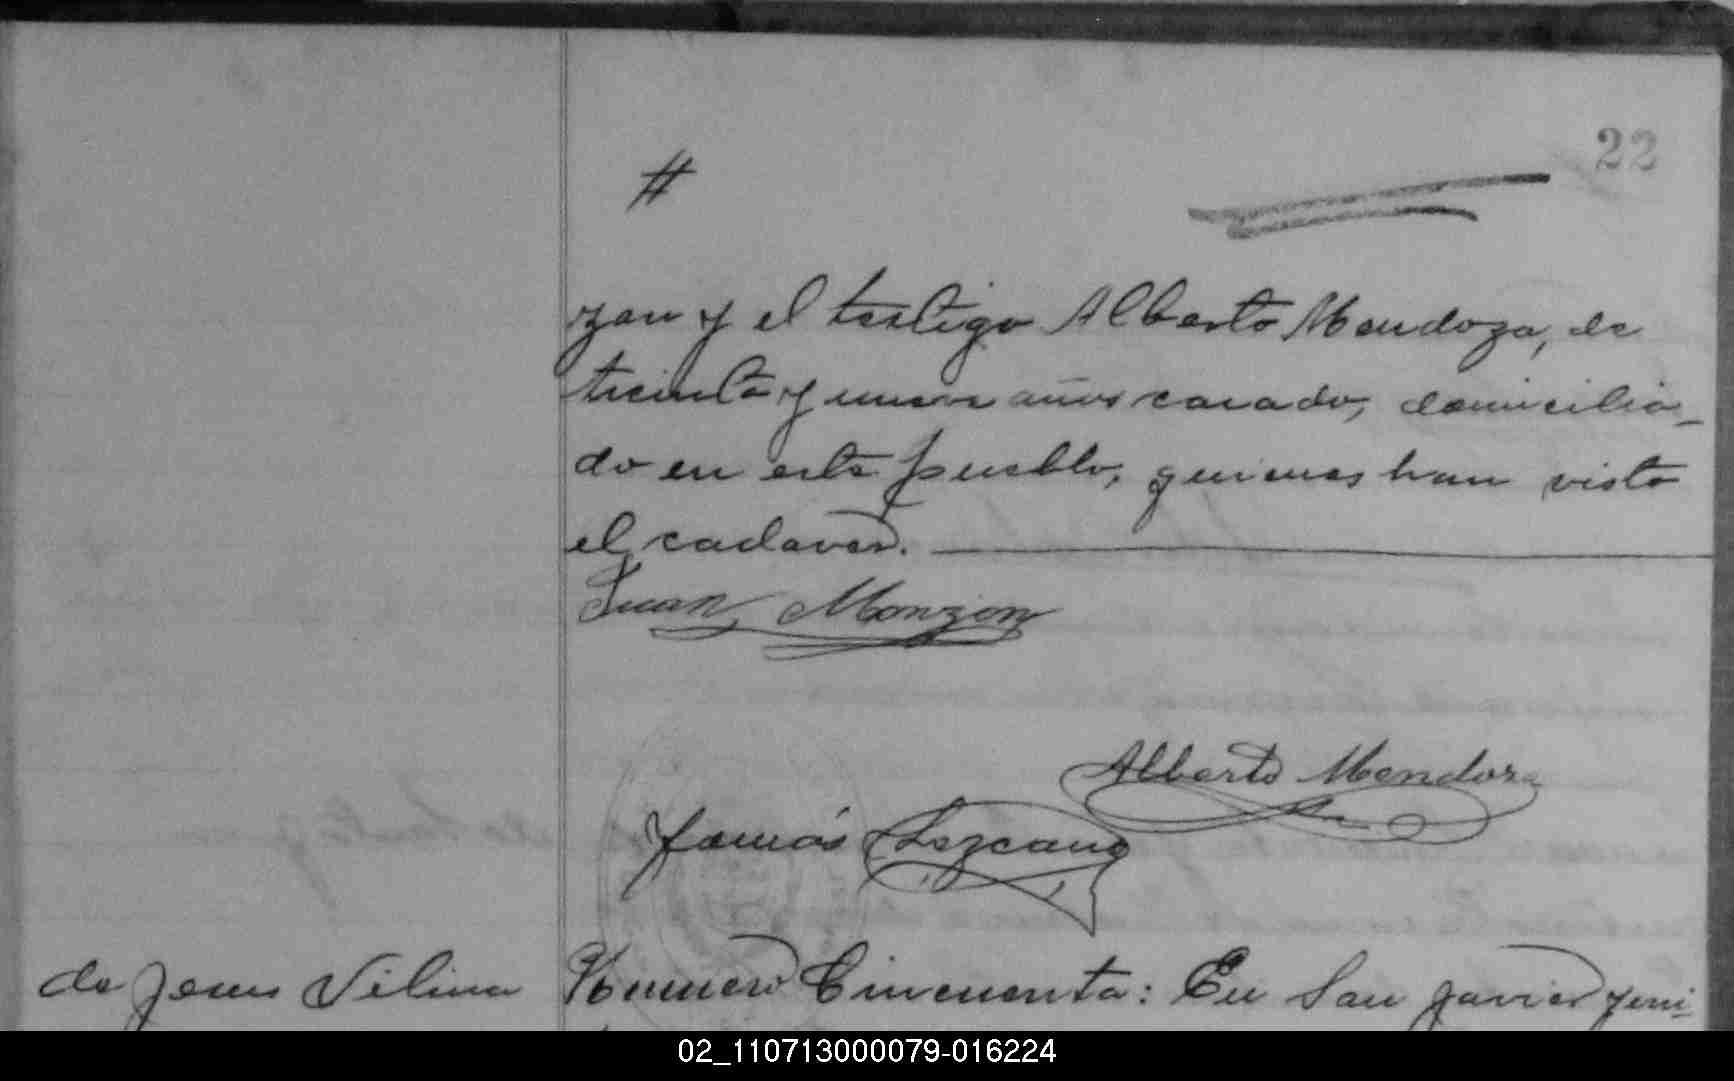 22
#
zon y el testigo Alberto Mendoza, de
treinta y nueve años casado, domicilia-
do en este pueblo, quienes han visto
el cadaver.
Juan Monzon
Alberto Mendoza
Tomás Lezcano
de Jesus Silima Numero Cincuenta: En San Javier, quin-
02_110713000079-016224